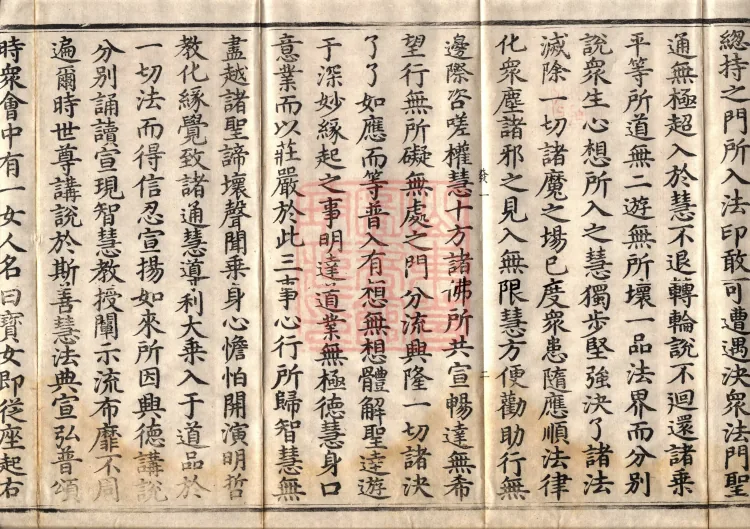 緫持之門所入法印敢可遭遇決衆法門聖
通無極超入於慧不退轉輪說不迴還諸乗
平等所道無二遊無所壞一品法界而分別
說衆生心想所入之慧獨步堅強決了諸法
滅除一切諸魔之場已度衆患隨應順法律
化衆塵諸邪之見入無限慧方便勸助行無
邊際咨嗟權慧十方諸佛所共宣暢達無希
望行無所礙無處之門分流興隆一切諸決
了了如應而等普入有想無想體解聖逹遊
于深妙緣起之事明達道業無極德慧身口
意業而以莊嚴於此三事心行所歸智慧無
盡越諸聖諦壞聲聞乗身心憺怕開演明哲
教化緣覺致諸通慧導利大乗入于道品於
一切法而得信忍宣揚如來所因興德講說
分別誦讀宣現智慧教授闡示流布靡不周
遍爾時世尊講說於斯善慧法典宣弘普頌
時衆會中有一女人名曰寳女即從座起右